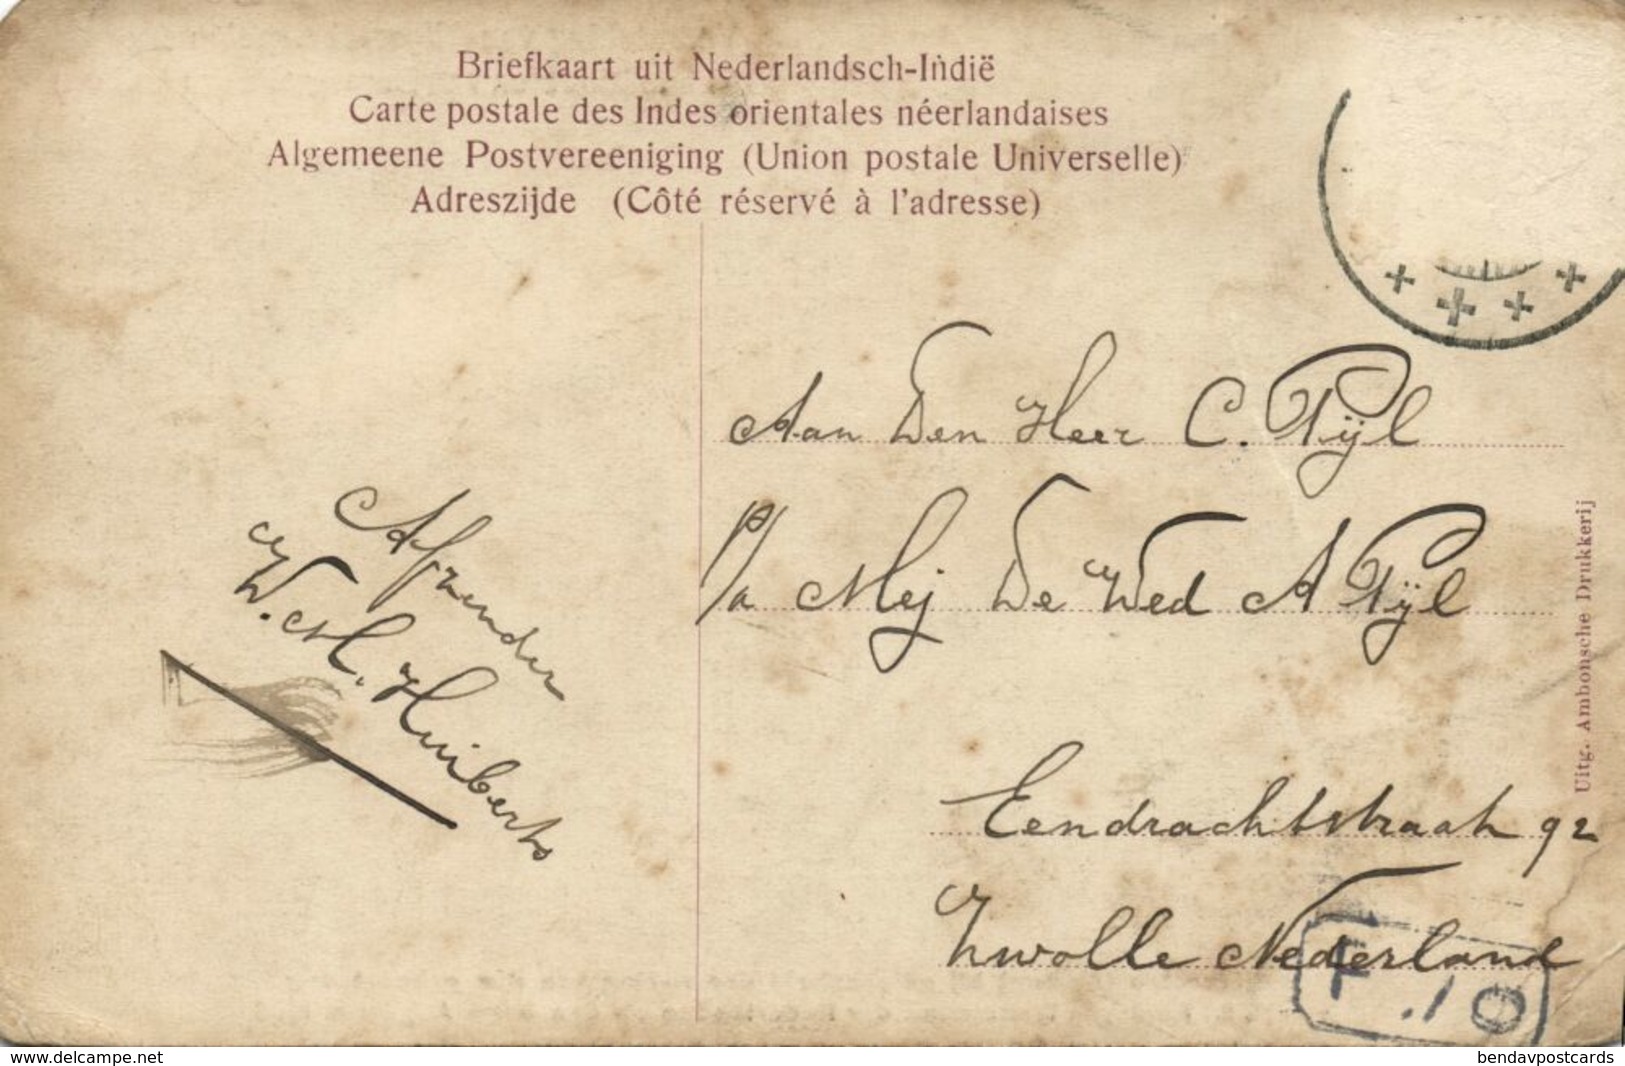 Briefkaart uit Nederlandsch-Indië
Carte postale des Indes orientales néerlandaises
Algemeene Postvereeniging (Union postale Universelle)
Adreszijde (Côté réservé à l'adresse)
Aan Den Heer C. Pijl
P/a Mej De Wed A Pijl
Eendrachtstraat 92
Zwolle Nederland
Afzender
W. M. Huiberts
Uitg. Ambonsche Drukkerij
F
.10
www.delcampe.net
bendavpostcards